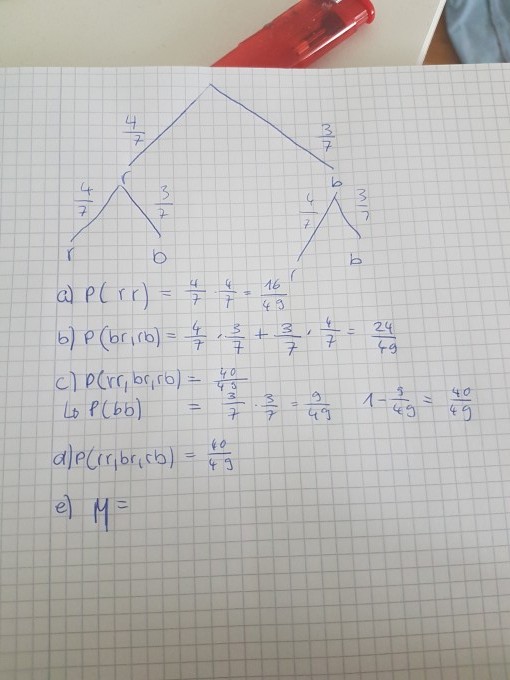 4/7 3/7
r b
4/7 3/7 4/7 3/7
r b r b
a) P(rr) = 4/7 · 4/7 = 16/49
b) P(br,rb) = 4/7 · 3/7 + 3/7 · 4/7 = 24/49
c) P(rr,br,rb) = 40/49
↳ P(bb) = 3/7 · 3/7 = 9/49 1 - 9/49 = 40/49
d) P(rr,br,rb) = 40/49
e) μ =